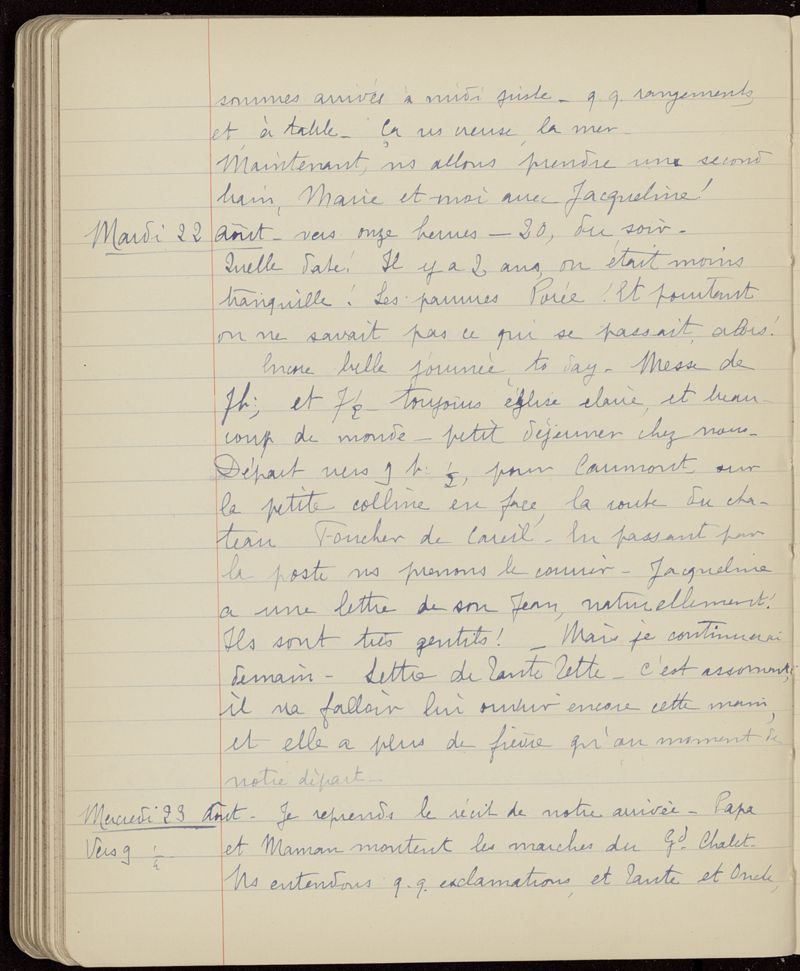 sommes arrivés à midi juste - q.q. rangements
et à table - Ça ns creuse, la mer -
Maintenant, ns allons prendre un second
bain, Marie et moi avec Jacqueline!
Mardi 22 août - vers onze heures - 20, du soir -
Quelle date! Il y a 2 ans, on était moins
tranquille! Les pauvres Porée! Et pourtant
on ne savait pas ce qui se passait, alors!
Encore belle journée to day - Messe de
7h:, et 7½ - toujours église claire, et beau-
coup de monde - petit déjeuner chez nous -
Départ vers 9 h: ½, pour Caumont, sur
la petite colline en face, la route du cha-
teau Foucher de Careil - En passant par
la poste ns prenons le courrier - Jacqueline
a une lettre de son Jean, naturellement!
Ils sont très gentils! - Mais je continuerai
demain - Lettre de Tante Zette - C'est assomant,
il va falloir lui ouvrir encore cette main,
et elle a plus de fièvre qu'au moment de
notre départ -
Mercredi 23 Août - Je reprends le récit de notre arrivée - Papa
Vers 9 ½ - et Maman montent les marches du Gd Chalet -
Ns entendons q.q. exclamations, et Tante et Oncle,